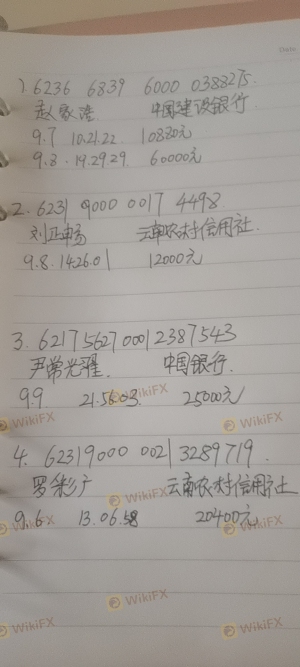 1) 6236 6839 6000 0388275
赵家浩 中国建设银行
9.7 10.21.22 10830元
9.8.19.29.29. 60000元
2. 6231 9000 0017 4498
刘正畅 云南农村信用社.
9.8.14.26.01 12000元
3. 6217562700012387543
尹常光耀. 中国银行.
9.9 21.56.03. 25000元
WikiFX
WikiFX
WikiFX
4. 6231 9000 0021 3289719.
罗彩广 云南农村信用社
WikiFX
WikiFX
9.6 13.06.58 20400元
WikiFX
WikiFX
WikiFX
WikiFX
WikiFX